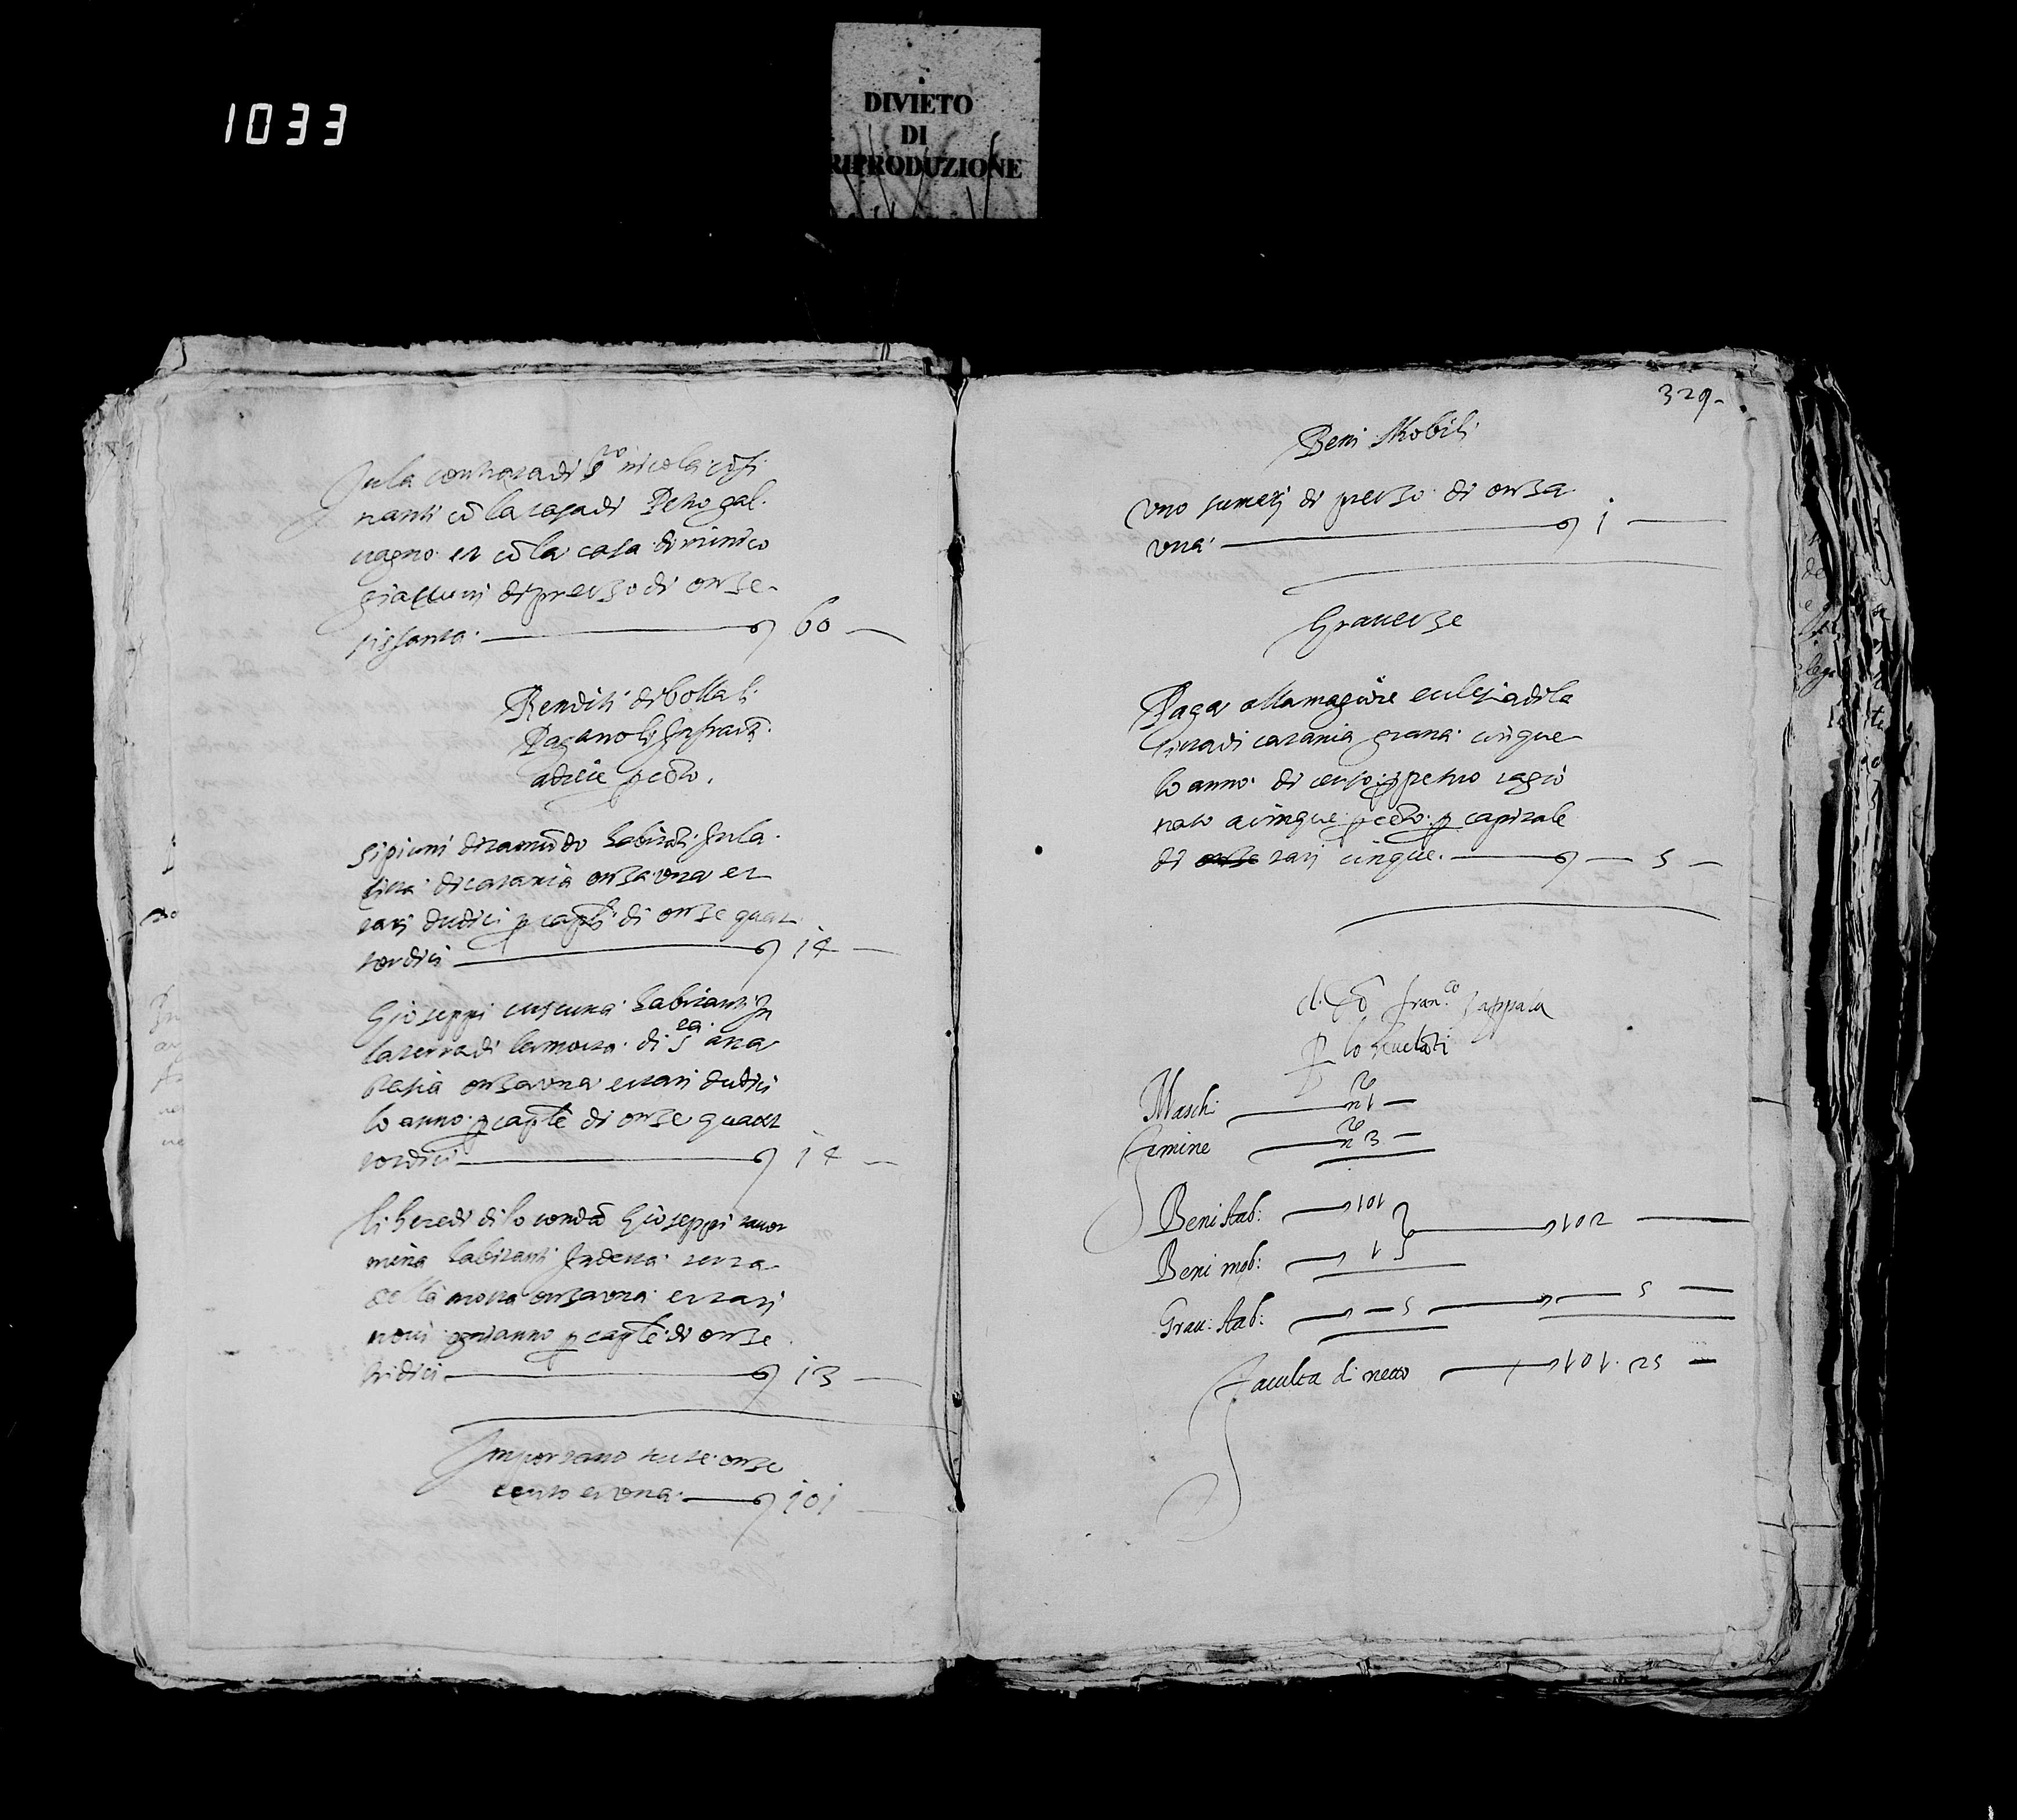 1033
DIVIETO
DI
RIPRODUZIONE
Inla contrata di s.to nicola
nanti cũ la casa di Petro gal
vagno et cũ la casa di minico
di prezzo di onze
sissanta 60
Renditi di bollali
Paganoli Infratti
a dieie p cẽto.
Sipioni di ramũdo habitãti Inla
cita di catania onza una et
tarì dudici p capitli di onze quat
tordici 14
Gioseppi cuscuna habitanti In
la terra di la motta di s.ta ana
stasia onza una et tarì dudici
lo anno p captle di onze quatt
tordici 14
li heredi di lo condã Gioseppi tauor
mina habitanti In detta terra
della motta onza una et tarì
novi ogni anno p captle di onze
tridici 13
Importano tutte onze
cento et una 101
329
Beni Mobili
Uno sumerj di prezzo di onza
una 1
Graveze
Paga alla magiore eclesia di la
cita di catania grana cinque
lo anno di censo ppetuo ragio
nato a cinque p cẽto p capitale
di onze tarì cinque 5
d. Fran.co Zappala
P lo rivelãti
Maschi no 1
Femine no 3
Beni stab: 101
102
Beni mob: 1
Grav: stab: 5 5
Faculta di netto 101. 25